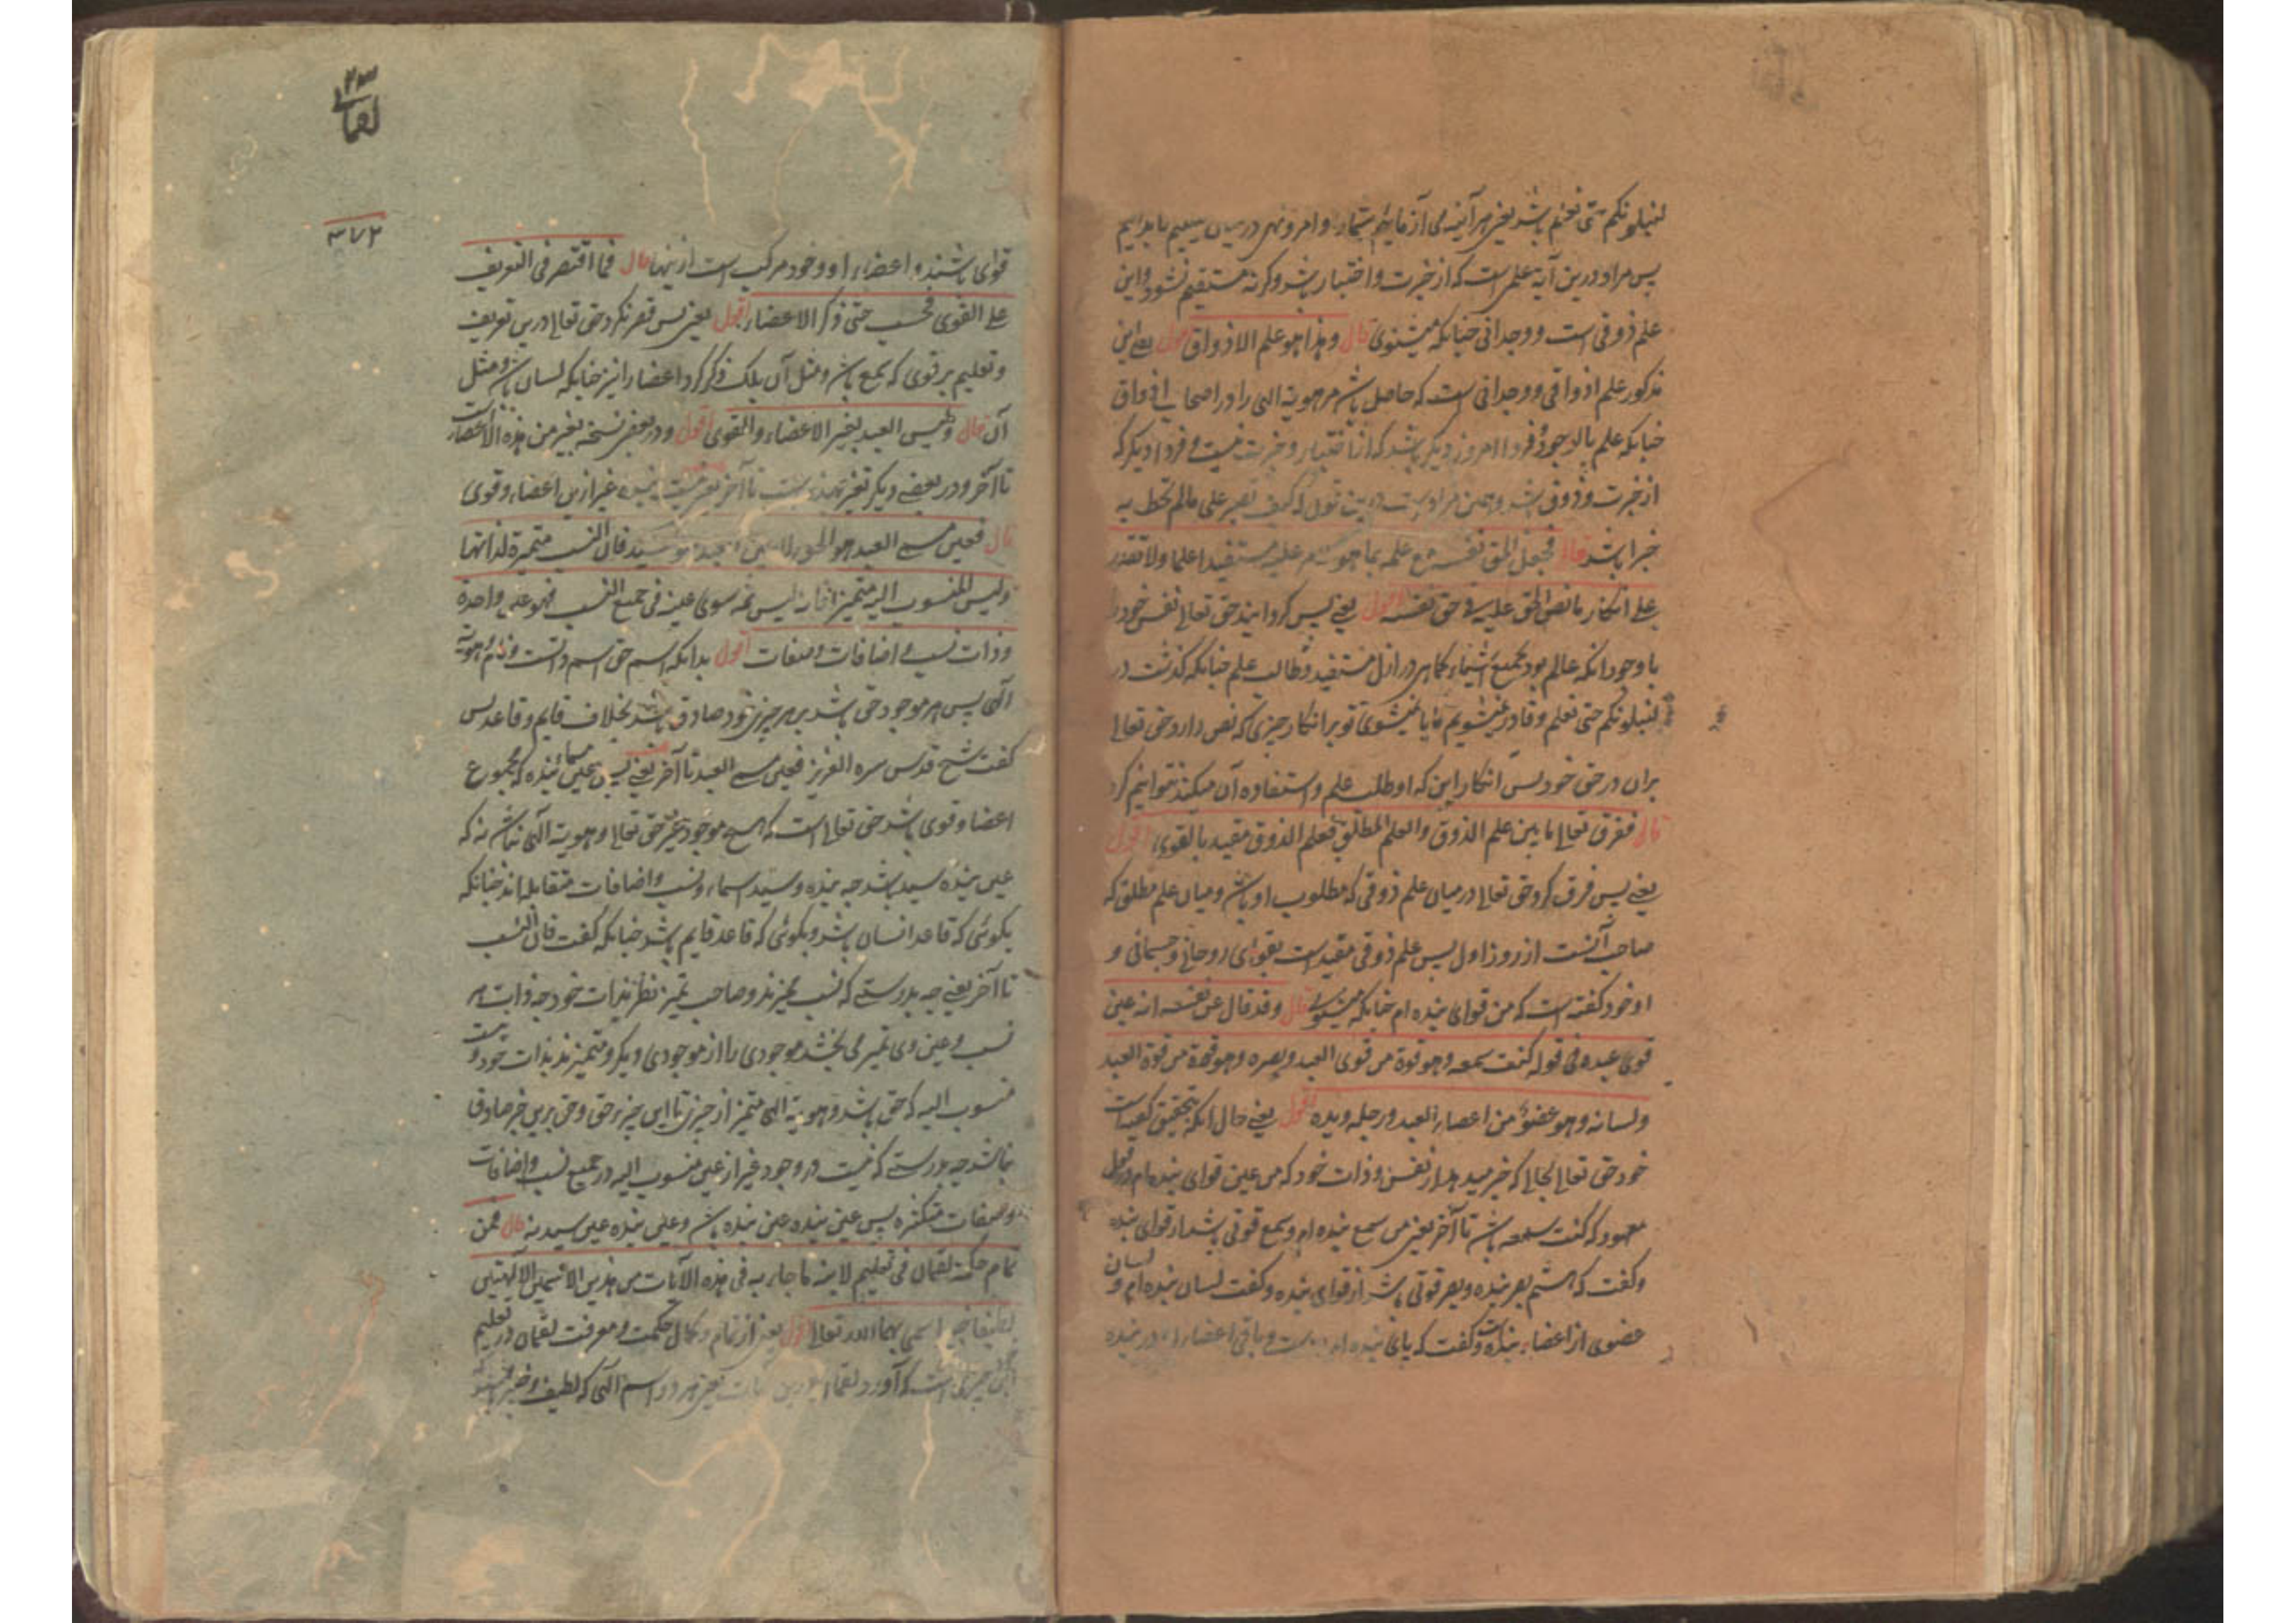 لنبلونکم حتی نعلم باشد یعنی هر آینه می آزمایم شما را و امر و نهی در میان می نهیم تا بدانیم
پس مراد درین آیة علمی است که از خبرت و اختبار باشد وکرنه مستقیم نشود و این
علم ذوقی است و وجدانی چنانکه میشنوی قال وهذا هو علم الاذواق اقول یعنی این
مذکور علم اذواقی و وجدانی است که حاصل باشد مر هویة الهی را در اصحاب اذواق
چنانکه علم بالوجود فردا امروز دیکر باشد که از اختبار و خبرت نیست و فردا دیکر که
از خبرت و ذوق باشد و همین مراد است قول که کیف تصبر علی مالم تحط به
خبرا باشد قال فجعل الحق نفسه مع علمه بما هو الامر علیه مستفیدا علما ولا تقدر
علی انکار ما نص الحق علیه فی حق نفسه اقول یعنی پس کردانید حق تعالی نفس خود را
با وجود انکه عالم بود بجمیع اشیاء کماهی در ازل مستفید و طالب علم چنانکه کذشت در
لنبلونکم حتی نعلم و قادر نمیشویم ما یا نمیشوی تو بر انکار چیزی که نص دارد حق تعالی
بران در حق خود پس انکار این که او طلب علم و استفاده آن میکند نتوانیم کرد
قال ففرق تعالی ما بین علم الذوق والعلم المطلق فعلم الذوق مقید بالقوی اقول
یعنی پس فرق کرد حق تعالی درمیان علم ذوقی که مطلوب او باشد و میان علم مطلق که
صاحب آنست از روز اول پس علم ذوقی مقید است بقوای روحانی و جسمانی و
او خود کفته است که من قوای بنده ام چنانکه میشنوی قال وقد قال عن نفسه انه عین
قوی عبده فی قوله کنت سمعه وهو قوة من قوی العبد وبصره وهو قوة من قوة العبد
ولسانه وهو عضو من اعضاء العبد ورجله ویده اقول یعنی حال انکه بتحقیق کفته است
خود حق تعالی بجای که خبر میدهد از نفس و ذات خود که من عین قوای بنده ام در قول
معهود که کنت سمعه باشد تا آخر یعنی من سمع بنده ام و سمع قوتی باشد از قوای بنده
وکفت که هستم بصر بنده و بصر قوتی باشد از قوای بنده وکفت لسان بنده ام و لسان
عضوی از اعضاء بنده است وکفت که پای بنده ام و باقی اعضاء در بنده
۲۳
لقمانی
۳۷۲
قوای باشند و اعضاء او و خود مرکب است ازینها قال فما اقتصر فی التعریف
علی القوی فحسب حتی ذکر الاعضاء اقول یعنی پس قصر نکرد حق تعالی درین تعریف
و تعلیم بر قوی که سمع باشد و مثل آن بلک ذکر کرد اعضا را نیز چنانکه لسان باشد و مثل
آن قال ولیس العبد بغیر الاعضاء والقوی اقول و در بعضی نسخه بغیر من هذه الاعضاء است
تا آخر و در بعضی دیکر تا آخر یعنی نیست بنده غیر ازین اعضاء و قوی
قال فعین مسمی العبد هو الحق لا عین العبد هو السید فان النسب متمیزة لذاتها
ولیس المنسوب الیه متمیزا فانه لیس ثمه سوی عینه فی جمیع النسب فهو عین واحدة
وذات نسب و اضافات وصفات اقول بدانکه اسم حق اسم ذاتست و نام هویة
الهی پس هر موجود حق باشد بر هر چیزی که بود صادق باشد بخلاف قایم و قاعد پس
کفت شیخ قدس سره العزیز فعین مسمی العبد تا آخر یعنی پس عین مسمای بنده که مجموع
اعضا و قوی باشد حق تعالی است که هیچ موجود بجز حق تعالی و هویة الهی نباشد نه که
عین بنده سید باشد چه بنده و سید اسماء و نسب و اضافات متقابله اند چنانکه
بکوئی که قاعد انسان باشد و بکوئی که قاعد قایم باشد چنانکه کفت فان النسب
تا آخر یعنی چه بدرستی که نسب ممیزند و صاحب تمیز نظر بذات خود چه ذات هر
نسب و عین وی تمیز می بخشد موجودی را از موجودی دیکر و متمیزند بذات خود و نیست
منسوب الیه که حق باشد و هویة الهی متمیز از چیزی تا این چیز بر حق و حق برین چیز صادق
نباشد چه بدرستی که نیست در وجود غیر از عین منسوب الیه در جمیع نسب و اضافات
و صفات متکثره پس عین بنده عین بنده باشد و عین بنده عین سید نه قال فمن
تمام حکمة لقمان فی تعلیم لابنه ما جاء به فی هذه الآیات من هذین الاسمین الالهیین
لطیفا خبیرا سمی بهما الله تعالی اقول یعنی از تمام و کمال حکمت و معرفت لقمان در تعلیم
چیزی است که آورد لقمان درین آیات یعنی هر دو اسم الهی که لطیف و خبیر